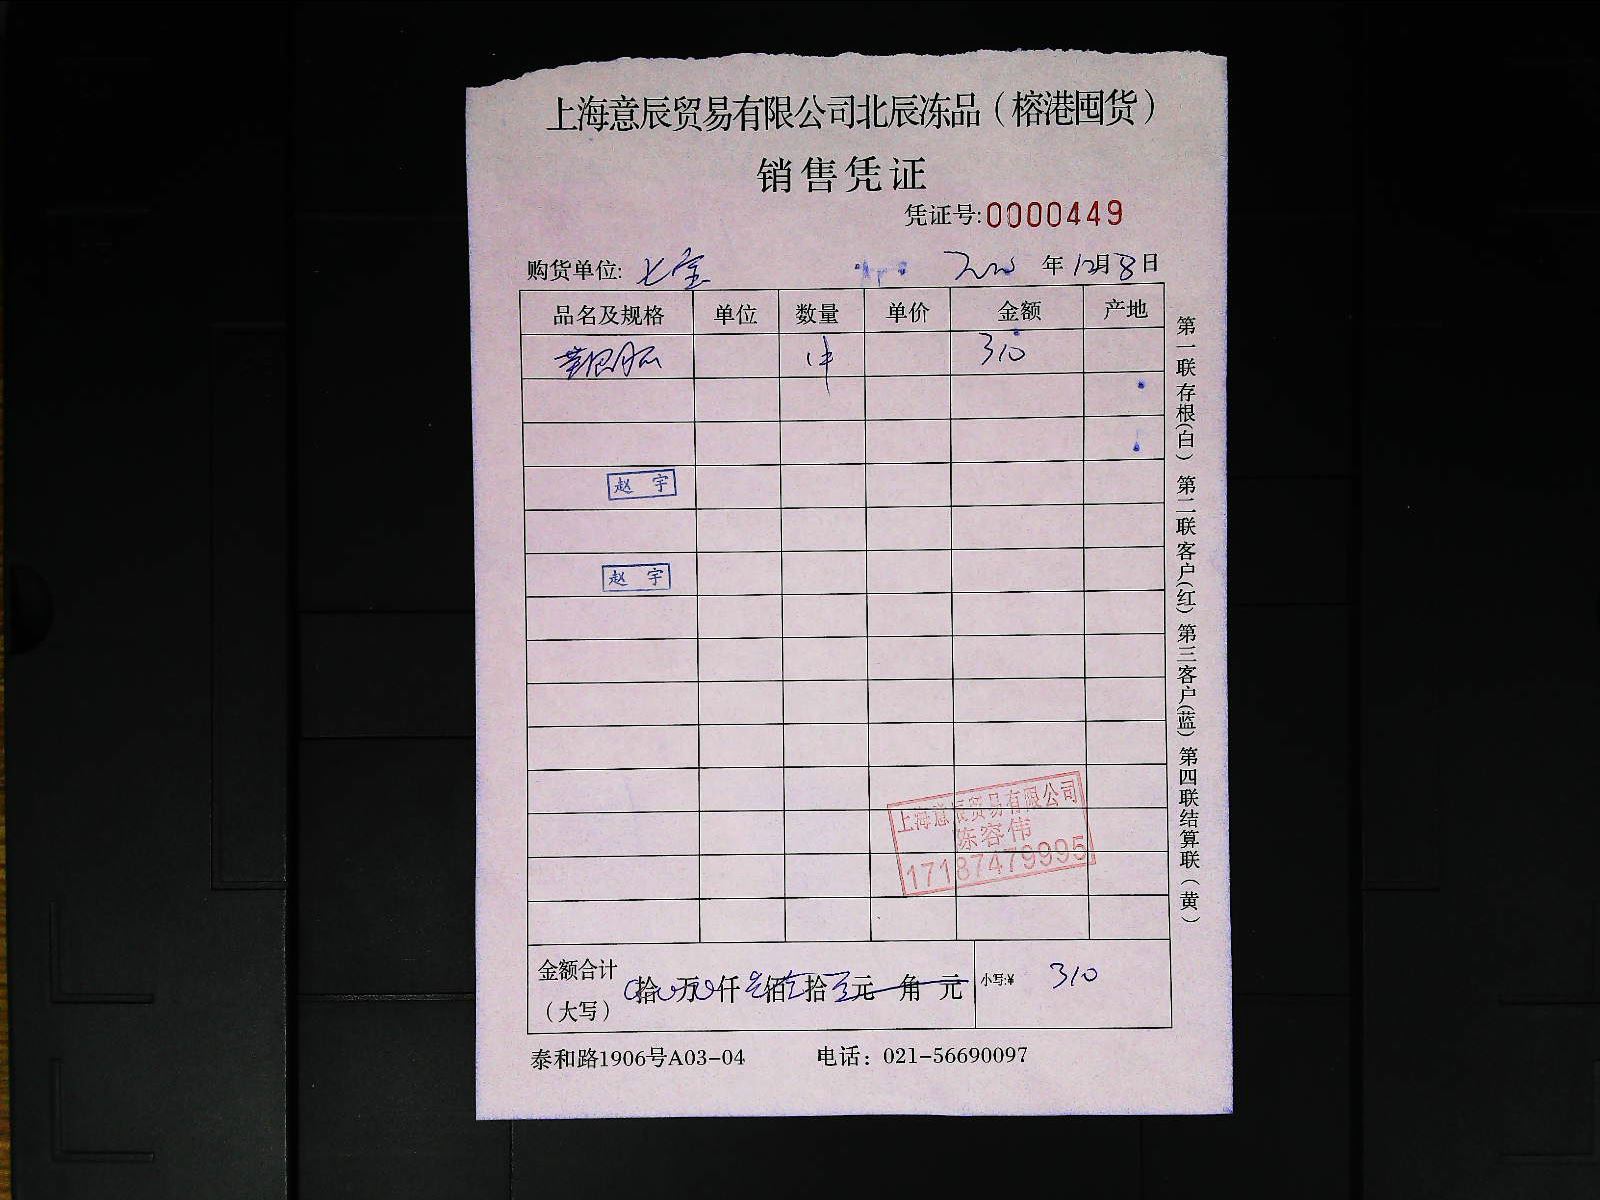 上海意辰贸易有限公司北辰冻品（榕港囤货）
销售凭证
凭证号:0000449
购货单位: 七宝 年12月8日
品名及规格 单位 数量 单价 金额 产地
1件 310
赵 宇
赵 宇
上海意辰贸易有限公司
陈容伟
17187479995
金额合计
（大写）
拾 万 仟 佰 拾 元 角 元
小写:¥ 310
泰和路1906号A03-04 电话：021-56690097
第一联存根(白) 第二联客户(红) 第三客户(蓝) 第四联结算联（黄）